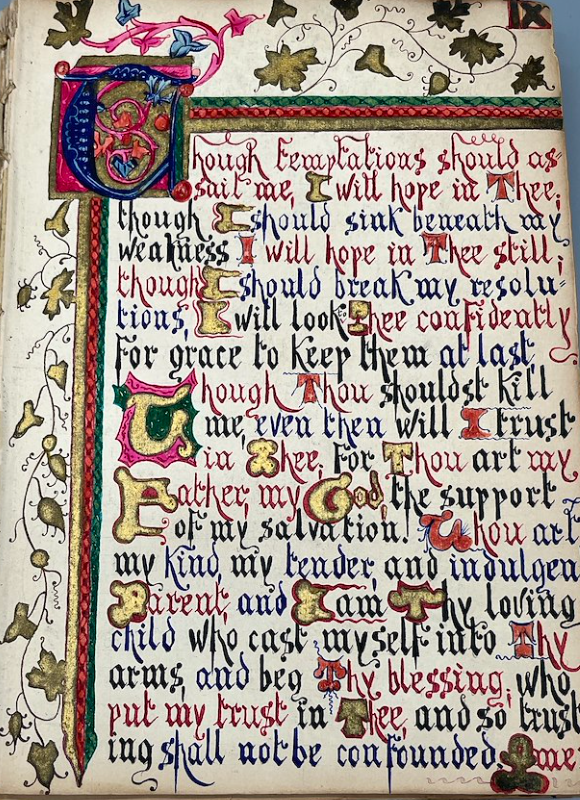 IX
Though temptations should as=
sail me, I will hope in Thee;
though I should sink beneath my
weakness I will hope in Thee still;
though I should break my resolu=
tions, I will look to Thee confidently
for grace to keep them at last
Though Thou shouldst kill
me, even then will I trust
in Thee, for Thou art my
Father, my God, the support
of my salvation! Thou art
my kind, my tender, and indulgen
Parent, and I am Thy loving
child who cast myself into Thy
arms, and beg Thy blessing, who
put my trust in Thee, and so trust
ing shall not be confounded. Ame